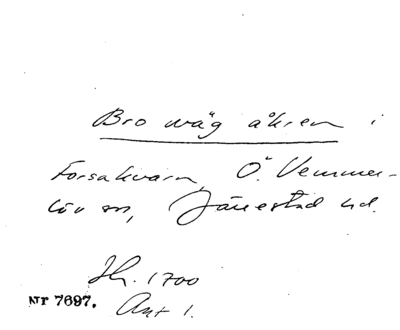 Bro wäg åkren i
Forsakvarn, Ö. Vemmer-
löv sn, Järrestad hd.
Jb. 1700
Nr 7697. Ant 1.